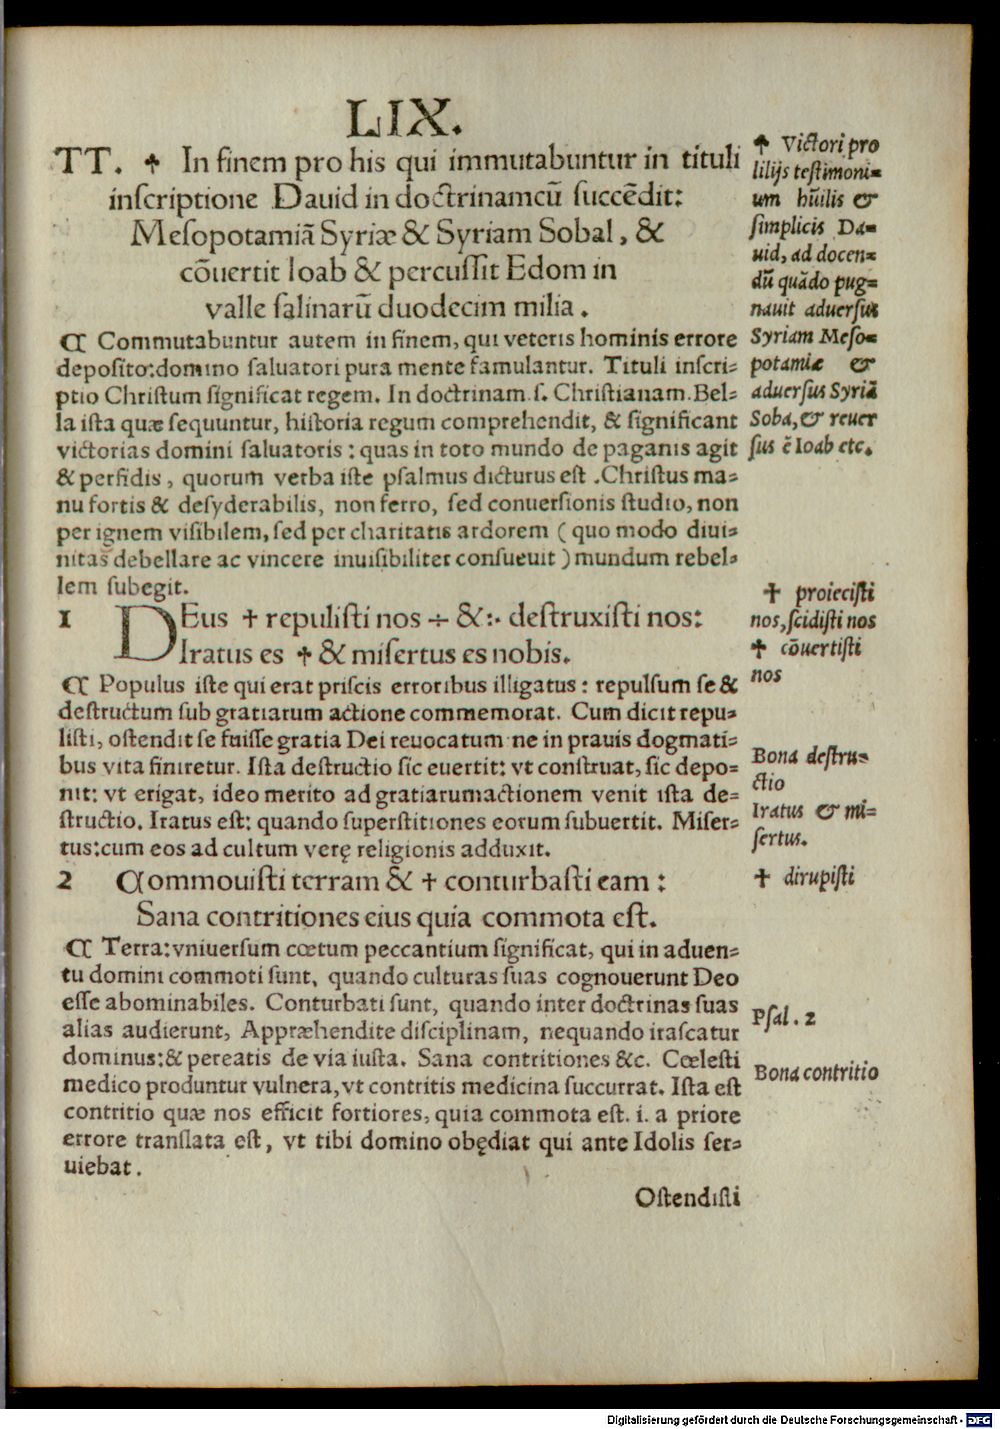 LIX.
TT. ✝ In finem pro his qui immutabuntur in tituli
inſcriptione Dauid in doctrinamcū ſuccēdit:
Meſopotamiā Syriæ & Syriam Sobal, &
cōuertit Ioab & percuſſit Edom in
valle ſalinarū duodecim milia.
¶ Commutabuntur autem in finem, qui veteris hominis errore
depoſito: domino ſaluatori pura mente famulantur. Tituli inſcri=
ptio Chriſtum ſignificat regem. In doctrinam. ſ. Chriſtianam. Bel=
la iſta quæ ſequuntur, hiſtoria regum comprehendit, & ſignificant
victorias domini ſaluatoris: quas in toto mundo de paganis agit
& perfidis, quorum verba iſte pſalmus dicturus eſt. Chriſtus ma=
nu fortis & deſyderabilis, non ferro, ſed conuerſionis ſtudio, non
per ignem viſibilem, ſed per charitatis ardorem (quo modo diui=
nitas debellare ac vincere inuiſibiliter conſueuit) mundum rebel=
lem ſubegit.
1 DEus ✝ repuliſti nos ÷ &:· deſtruxiſti nos:
Iratus es ✝ & miſertus es nobis.
¶ Populus iſte qui erat priſcis erroribus illigatus: repulſum ſe &
deſtructum ſub gratiarum actione commemorat. Cum dicit repu=
liſti, oſtendit ſe fuiſſe gratia Dei reuocatum ne in prauis dogmati=
bus vita finiretur. Iſta deſtructio ſic euertit: vt conſtruat, ſic depo=
nit: vt erigat, ideo merito ad gratiarumactionem venit iſta de=
ſtructio. Iratus eſt: quando ſuperſtitiones eorum ſubuertit. Miſer=
tus: cum eos ad cultum verę religionis adduxit.
2 Commouiſti terram & ✝ conturbaſti eam:
Sana contritiones eius quia commota eſt.
¶ Terra: vniuerſum cœtum peccantium ſignificat, qui in aduen=
tu domini commoti ſunt, quando culturas ſuas cognouerunt Deo
eſſe abominabiles. Conturbati ſunt, quando inter doctrinas ſuas
alias audierunt, Appræhendite diſciplinam, nequando iraſcatur
dominus: & pereatis de via iuſta. Sana contritiones &c. Cœleſti
medico produntur vulnera, vt contritis medicina ſuccurrat. Iſta eſt
contritio quæ nos efficit fortiores, quia commota eſt. i. a priore
errore tranſlata eſt, vt tibi domino obędiat qui ante Idolis ſer=
uiebat.
Oſtendiſti
✝ Victori pro
lilijs teſtimoni=
um hūilis &
ſimplicis Da=
uid, ad docen=
dū quādo pug=
nauit aduerſus
Syriam Meſo=
potamiæ &
aduerſus Syriā
Soba, & reuer
ſus ē Ioab etc.
✝ proieciſti
nos, ſcidiſti nos
✝ cōuertiſti
nos
Bona deſtru=
ctio
Iratus & mi=
ſertus.
✝ dirupiſti
Pſal. 2
Bona contritio
Digitalisierung gefördert durch die Deutsche Forschungsgemeinschaft - DFG